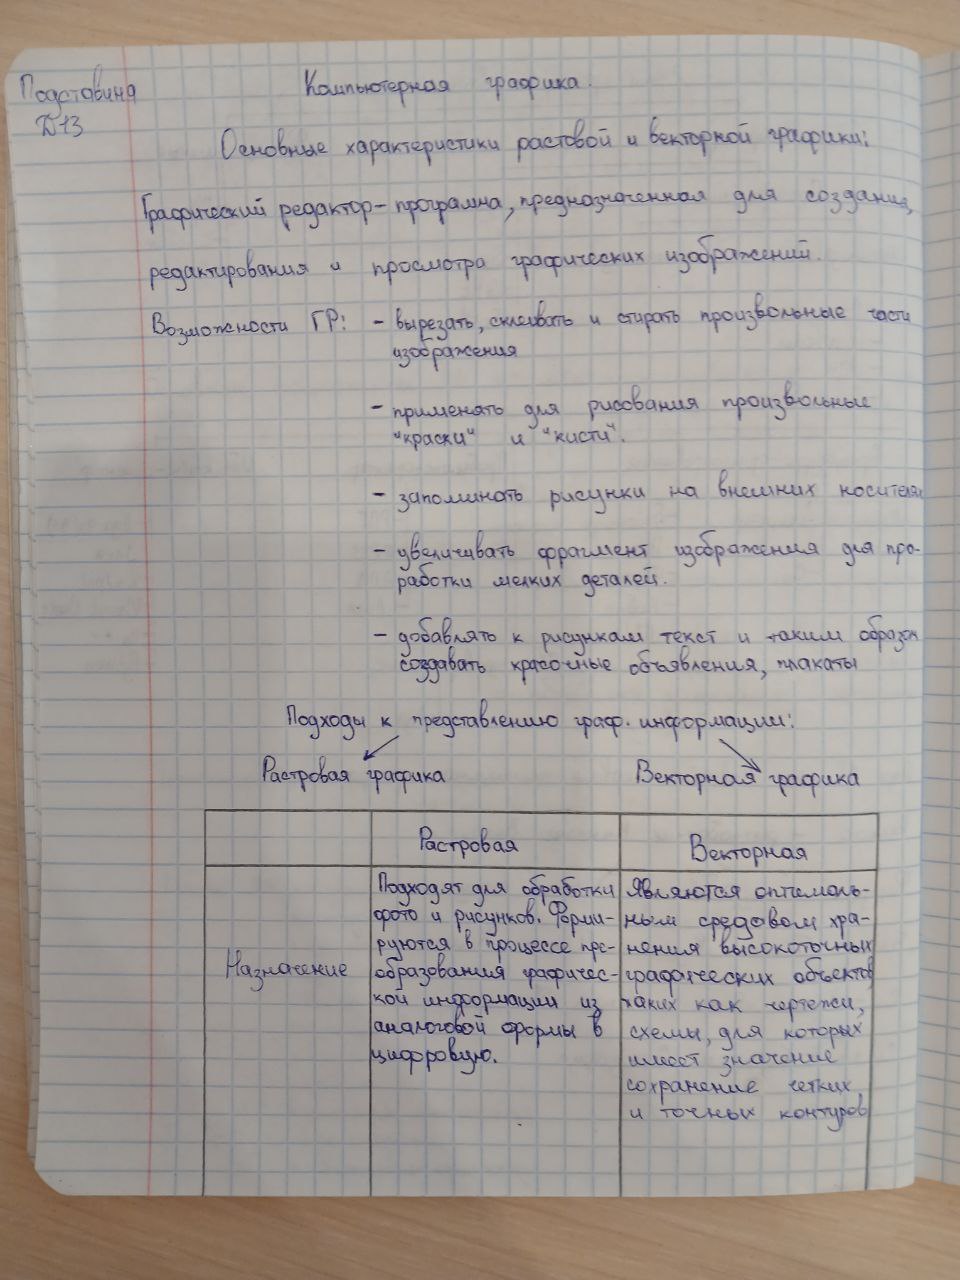 Подставина
Д13
Компьютерная графика.
Основные характеристики растовой и векторной графики:
Графический редактор - программа, предназначенная для создания,
редактирования и просмотра графических изображений.
Возможности ГР: - вырезать, склеивать и стирать произвольные части
изображения
- применять для рисования произвольные
"краски" и "кисти".
- запоминать рисунки на внешних носителях
- увеличивать фрагмент изображения для про-
работки мелких деталей.
- добавлять к рисункам текст и таким образом
создавать красочные объявления, плакаты
Подходы к представлению граф. информации:
Растровая графика
Векторная графика
Растровая
Векторная
Назначение
Подходят для обработки
фото и рисунков. Форми-
руются в процессе пре-
образования графичес-
кой информации из
аналоговой формы в
цифровую.
Являются оптималь-
ным средовом хра-
нения высокоточных
графических объектов
таких как чертежи,
схемы, для которых
имеет значение
сохранение четких
и точных контуров